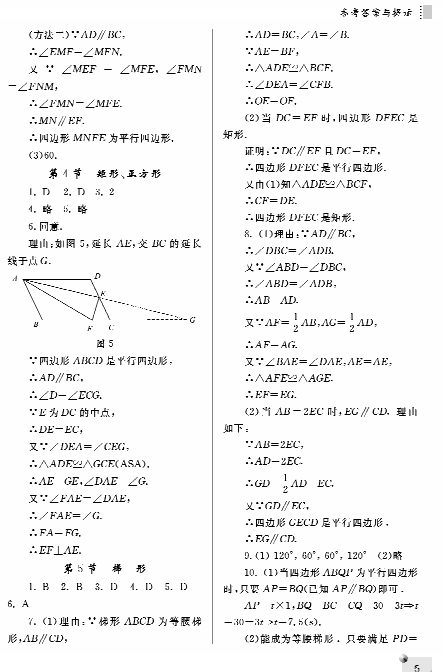 参考答案与提示
(方法二)∵AD∥BC,
∴∠EMF=∠MFN.
又∵∠MEF=∠MFE, ∠FMN
=∠FNM,
∴∠FMN=∠MFE.
∴MN∥EF.
∴四边形 MNFE 为平行四边形.
(3)60.
第 4 节 矩形、正方形
1. D 2. D 3. 2
4. 略 5. 略
6. 同意.
理由:如图 5,延长 AE,交 BC 的延长
线于点 G.
A D
E
B F C G
图 5
∵四边形 ABCD 是平行四边形,
∴AD∥BC,
∴∠D=∠ECG.
∵E 为 DC 的中点,
∴DE=EC,
又∵∠DEA=∠CEG,
∴△ADE≌△GCE(ASA).
∴AE=GE,∠DAE=∠G.
又∵∠FAE=∠DAE,
∴∠FAE=∠G.
∴FA=FG.
∴EF⊥AE.
第 5 节 梯 形
1. B 2. B 3. D 4. D 5. D
6. A
7. (1)理由:∵梯形 ABCD 为等腰梯
形,AB∥CD,
∴AD=BC,∠A=∠B.
∵AE=BF,
∴△ADE≌△BCF.
∴∠DEA=∠CFB.
∴OE=OF.
(2)当 DC=EF 时,四边形 DFEC 是
矩形.
证明:∵DC∥EF 且 DC=EF,
∴四边形 DFEC 是平行四边形.
又由(1)知△ADE≌△BCF,
∴CF=DE.
∴四边形 DFEC 是矩形.
8. (1)理由:∵AD∥BC,
∴∠DBC=∠ADB.
又∵∠ABD=∠DBC,
∴∠ABD=∠ADB,
∴AB=AD.
又∵AF=1/2 AB,AG=1/2 AD,
∴AF=AG.
又∵∠BAE=∠DAE,AE=AE,
∴△AFE≌△AGE.
∴EF=EG.
(2)当 AB=2EC 时,EG∥CD. 理由
如下:
∵AB=2EC,
∴AD=2EC.
∴GD=1/2 AD=EC.
又∵GD∥EC,
∴四边形 GECD 是平行四边形,
∴EG∥CD.
9. (1) 120°, 60°, 60°, 120° (2)略
10. (1)当四边形 ABQP 为平行四边形
时,只要 AP=BQ(已知 AP∥BQ)即可.
AP=t×1,BQ=BC-CQ=30-3t⇒t
=30-3t⇒t=7.5(s).
(2)能成为等腰梯形. 只要满足 PD=
5